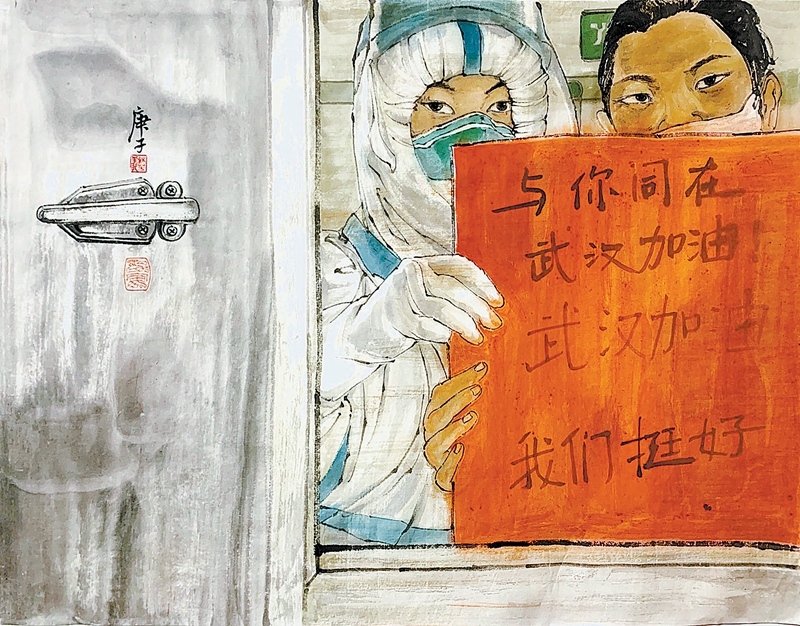 庚子
与你同在
武汉加油！
武汉加油
我们挺好